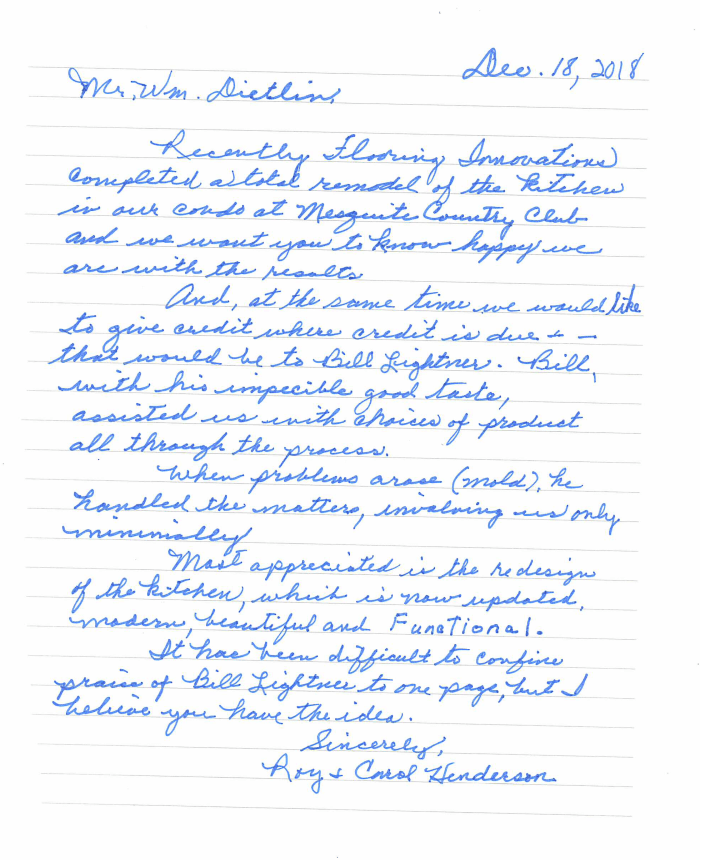 Dec. 18, 2018
Mr. Wm. Dietlin,
Recently Flooring Innovations
completed a total remodel of the kitchen
in our condo at Mesquite Country Club
and we want you to know happy we
are with the results
And, at the same time we would like
to give credit where credit is due + -
that would be to Bill Lightner. Bill,
with his impecible good taste,
assisted us with choices of product
all through the process.
When problems arose (mold), he
handled the matters, involving us only
minimally
Most appreciated is the redesign
of the kitchen, which is now updated,
modern, beautiful and Functional.
It has been difficult to confine
praise of Bill Lightner to one page, but I
believe you have the idea.
Sincerely,
Roy & Carol Henderson